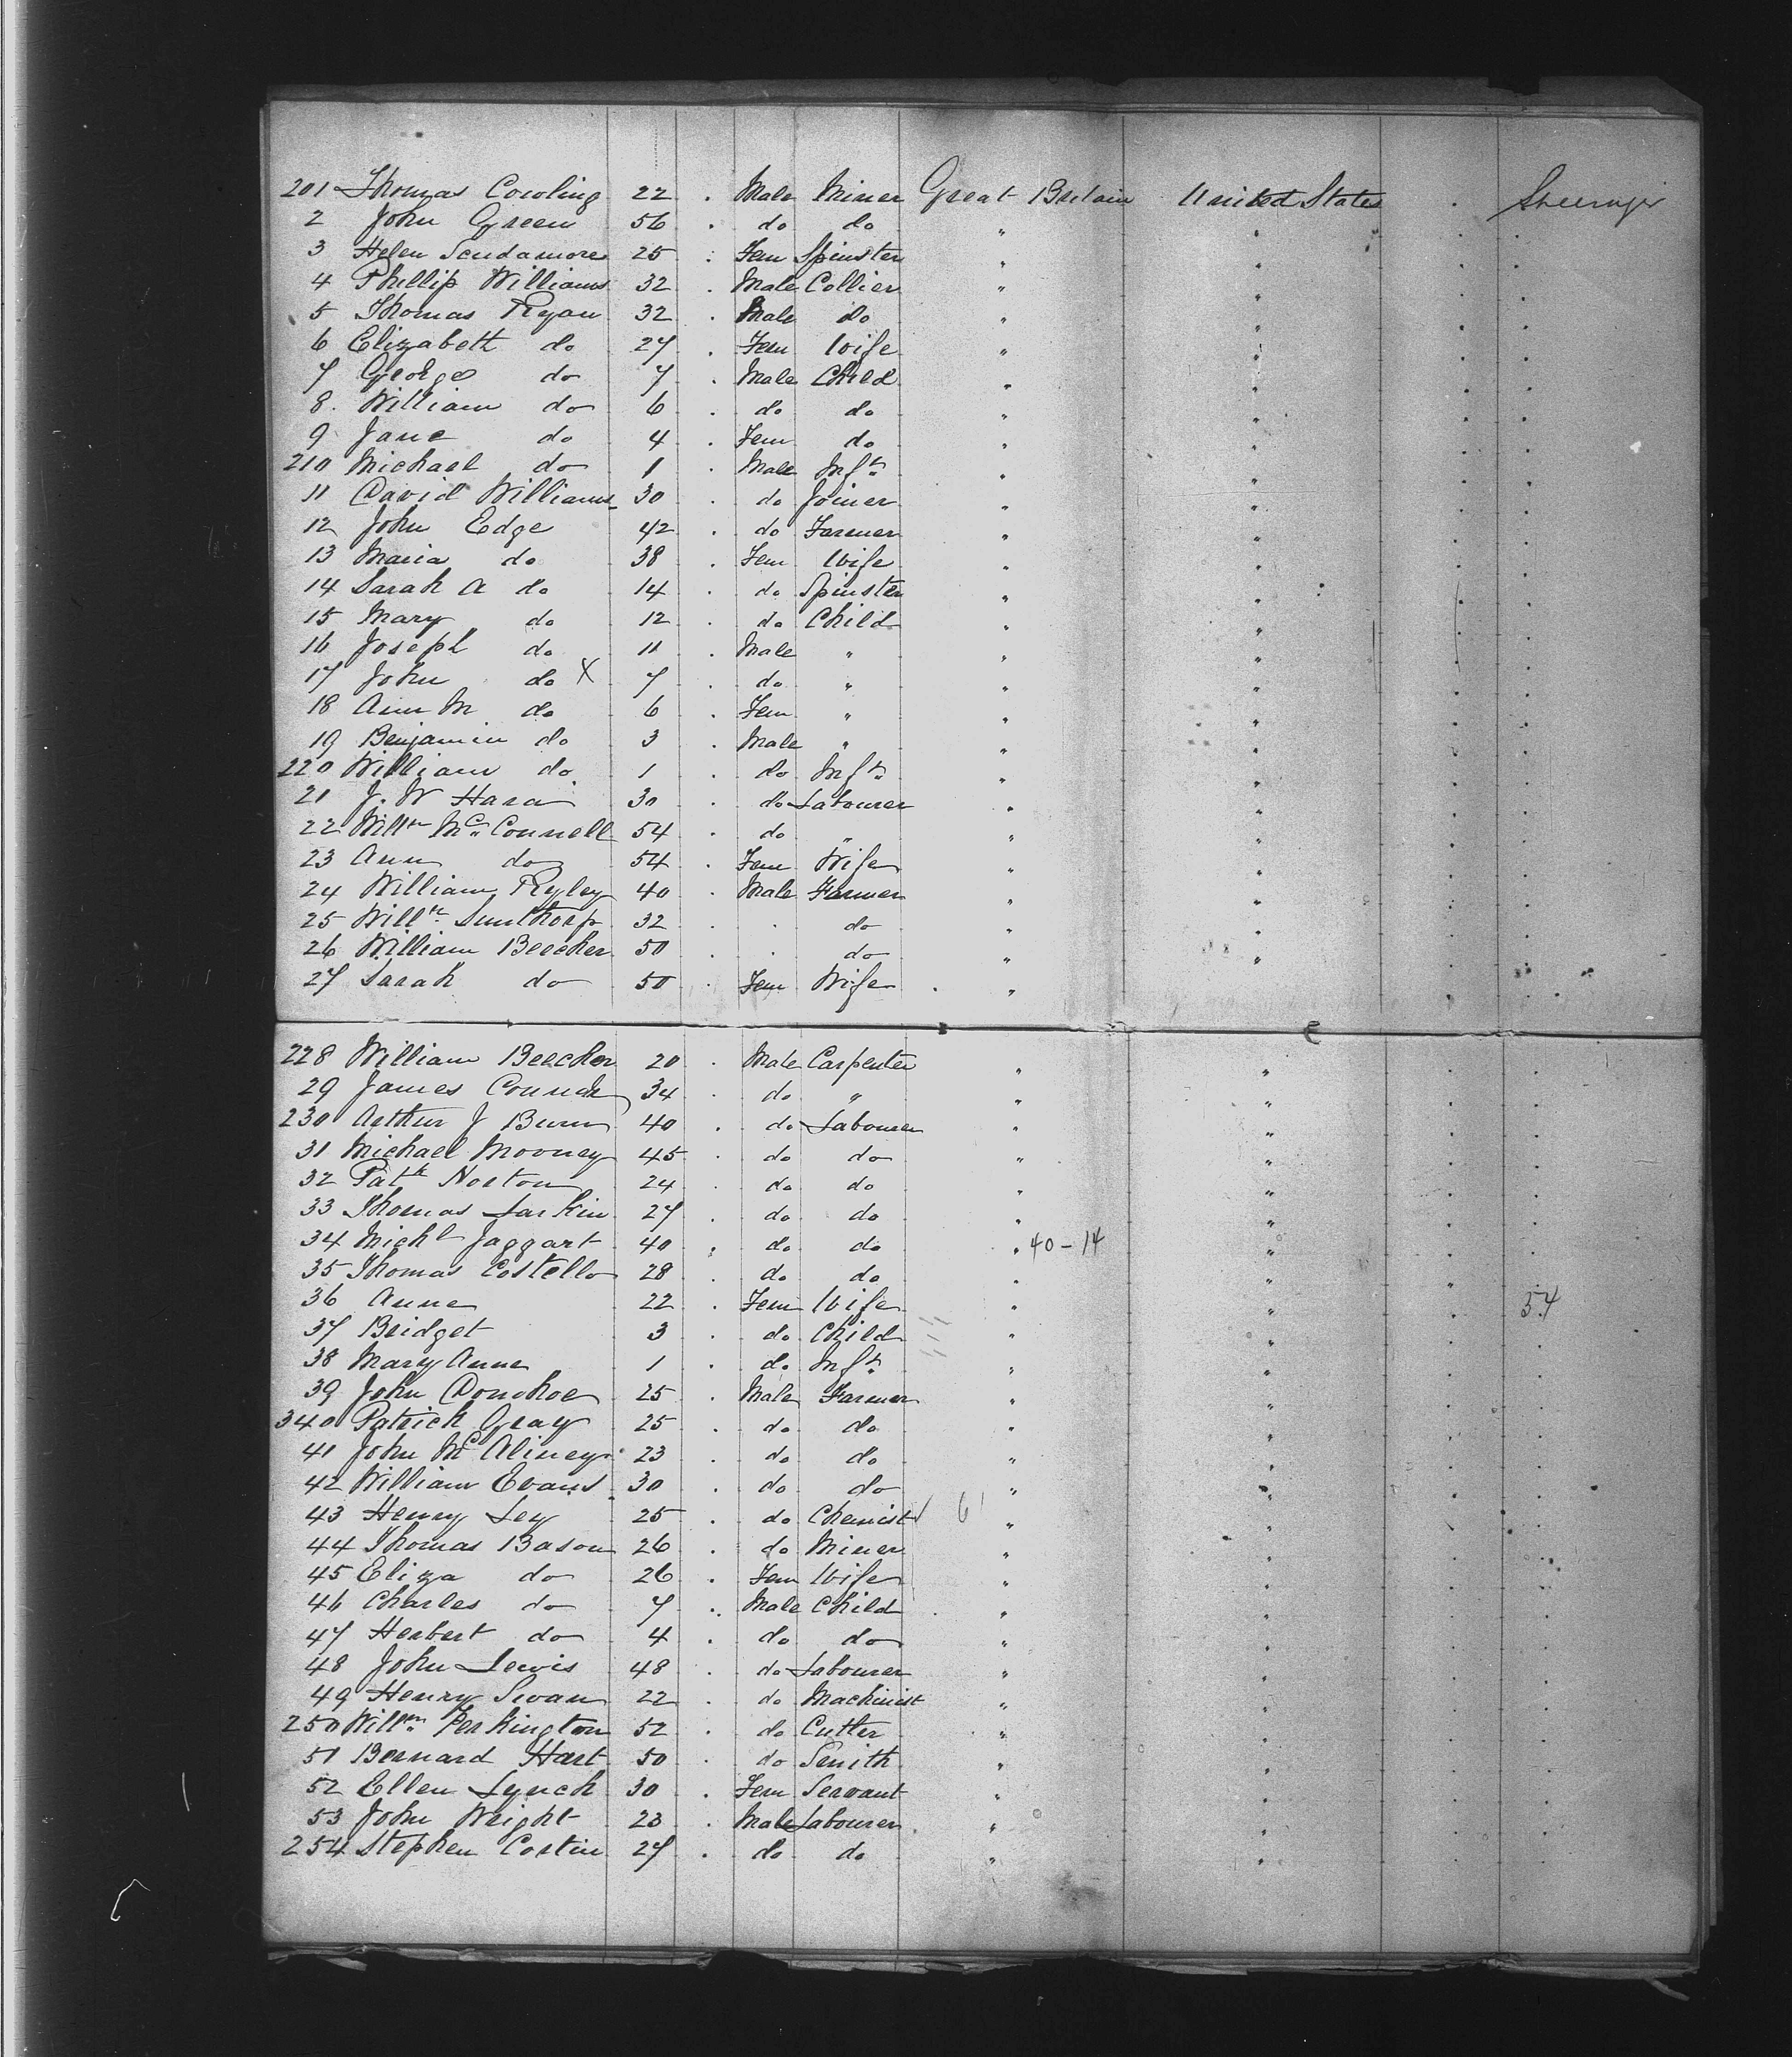 201 Thomas Cowling 22 . Male Miner Great Britain United States . Steerage
2 John Green 56 . do do " " . .
3 Helen Scudamore 25 : Fem Spinster " " . .
4 Phillip Williams 32 . Male Collier " " . .
5 Thomas Ryan 32 . Male do " " . .
6 Elizabeth do 27 . Fem Wife " " . .
7 George do 7 . Male Child " " . .
8. William do 6 . do do " " . .
9 Jane do 4 . Fem do " " . .
210 Michael do 1 . Male Inft " " . .
11 David Williams 30 . do Joiner " " . .
12 John Edge 42 . do Farmer " " . .
13 Maria do 38 . Fem Wife " " . .
14 Sarah A do 14 . do Spinster " " . .
15 Mary do 12 . do Child " " . .
16 Joseph do 11 . Male " " " . .
17 John do X 7 . do " " " . .
18 Ann M do 6 . Fem " " " . .
19 Benjamin do 3 . Male " " " . .
220 William do 1 . do Inft " " . .
21 J. W Hara 30 . do Labourer " " . .
22 Willm McConnell 54 . do " " " . .
23 Ann do 54 . Fem Wife " " . .
24 William Ryley 40 . Male Farmer " " . .
25 Willm 32 . . do " " . .
26 William Beecher 50 . . do " " . .
27 Sarah do 50 . Fem Wife " " . .
228 William Beecher 20 . Male Carpenter " " . .
29 James 34 . do " " " . .
230 Arthur J Burn 40 . do Labourer " " . .
31 Michael Mooney 45 . do do " " . .
32 Patk Norton 24 . do do " " . .
33 Thomas Larkin 27 . do do " " . .
34 Michl Jaggart 40 . do do " 40-14 " . .
35 Thomas Costello 28 . do do " " . .
36 Anne 22 . Fem Wife " " . 54
37 Bridget 3 . do Child " " . .
38 Mary Anne 1 . do Inft " " . .
39 John Donohoe 25 . Male Farmer " " . .
340 Patrick Gray 25 . do do " " . .
41 John McAliney 23 . do do " " . .
42 William Evans 30 . do do " " . .
43 Henry Ley 25 . do Chemist 6 " " . .
44 Thomas Bason 26 . do Miner " " . .
45 Eliza do 26 . Fem Wife " " . .
46 Charles do 7 . Male Child " " . .
47 Herbert do 4 . do do " " . .
48 John Lewis 48 . do Labourer " " . .
49 Henry Swan 22 . do Machinist " " . .
250 Willm Perkington 52 . do Cutler " " . .
51 Bernard Hart 50 . do Smith " " . .
52 Ellen Lynch 30 . Fem Servant " " . .
53 John Wright 23 . Male Labourer " " . .
254 Stephen Costin 27 . do do " " . .